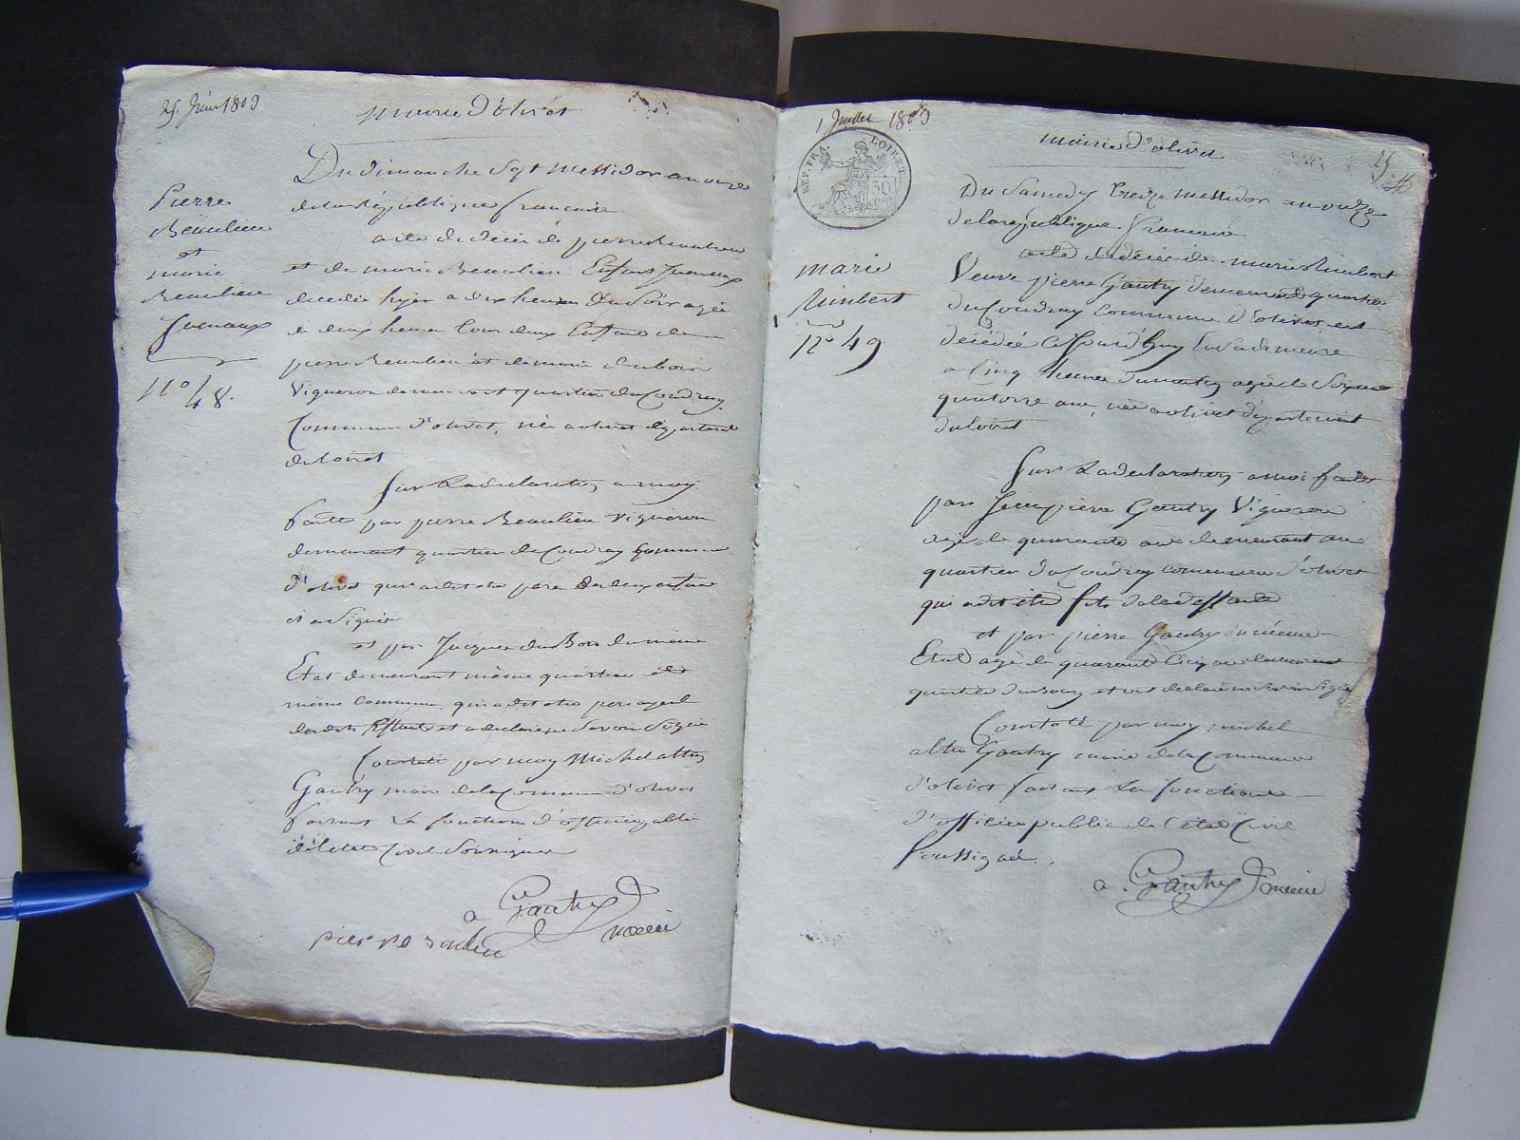 25 juin 1803
mairie d'olivet
Pierre
Beaulieu
et
marie
Beaulieu
Jumeaux
n° 48.
Du dimanche Sept messidor an onze
de la république francaise
acte de décès de pierre Beaulieu
et de marie Beaulieu Enfans Jumeaux
décédés hyer a dix heures Du Soir agés
de deux heures tous deux Enfans de
pierre Beaulieu et de marie dubois
Vigneron demeurant quartier du Coudray
Commune d'olivet, nés a olivet département
du loiret
Sur La declaration a moy
faitte par pierre Beaulieu Vigneron
demeurant quartier du Coudray Commune
d'olivet qui a dit etre pere des deux enfans
et a Signé
et par Jacques du Bois du même
Etat demeurant même quartier et
même Commune qui a dit etre
et a declaré ne Savoir Signer
Constaté par moy Michel altin
Gautry maire de la Commune d'olivet
faisant Les fonctions d'officier public
de l'état Civil Soussigné
a Gautry
pierre boulieu maire
1 Juillet 1803
REP. FRA. LOIRET
50
mairie d'olivet
25
marie
Rimbert
n° 49
Du Samedy treize messidor an onze
de la république francaise
acte de décès de marie Rimbert
Veuve pierre Gautry demeurant quartier
du Coudray Commune d'olivet est
décédée Cejourd'huy En Sa demeure
a Cinq heures du matin agée de Soixante
quatorze ans, née a olivet département
du loiret
Sur La declaration a moi faitte
par Jean pierre Gautry Vigneron
agé de quarante ans demeurant au
quartier du Coudray commune d'olivet
qui a dit être fils de la deffunte
et par pierre Gautry du même
Etat agé de quarante Cinq ans demeurant
quartier et ont declaré ne Savoir Signer
Constaté par moy michel
altin Gautry maire de la Commune
d'olivet faisant Les fonctions
d'officier public de l'état Civil
Soussigné.
a Gautry maire